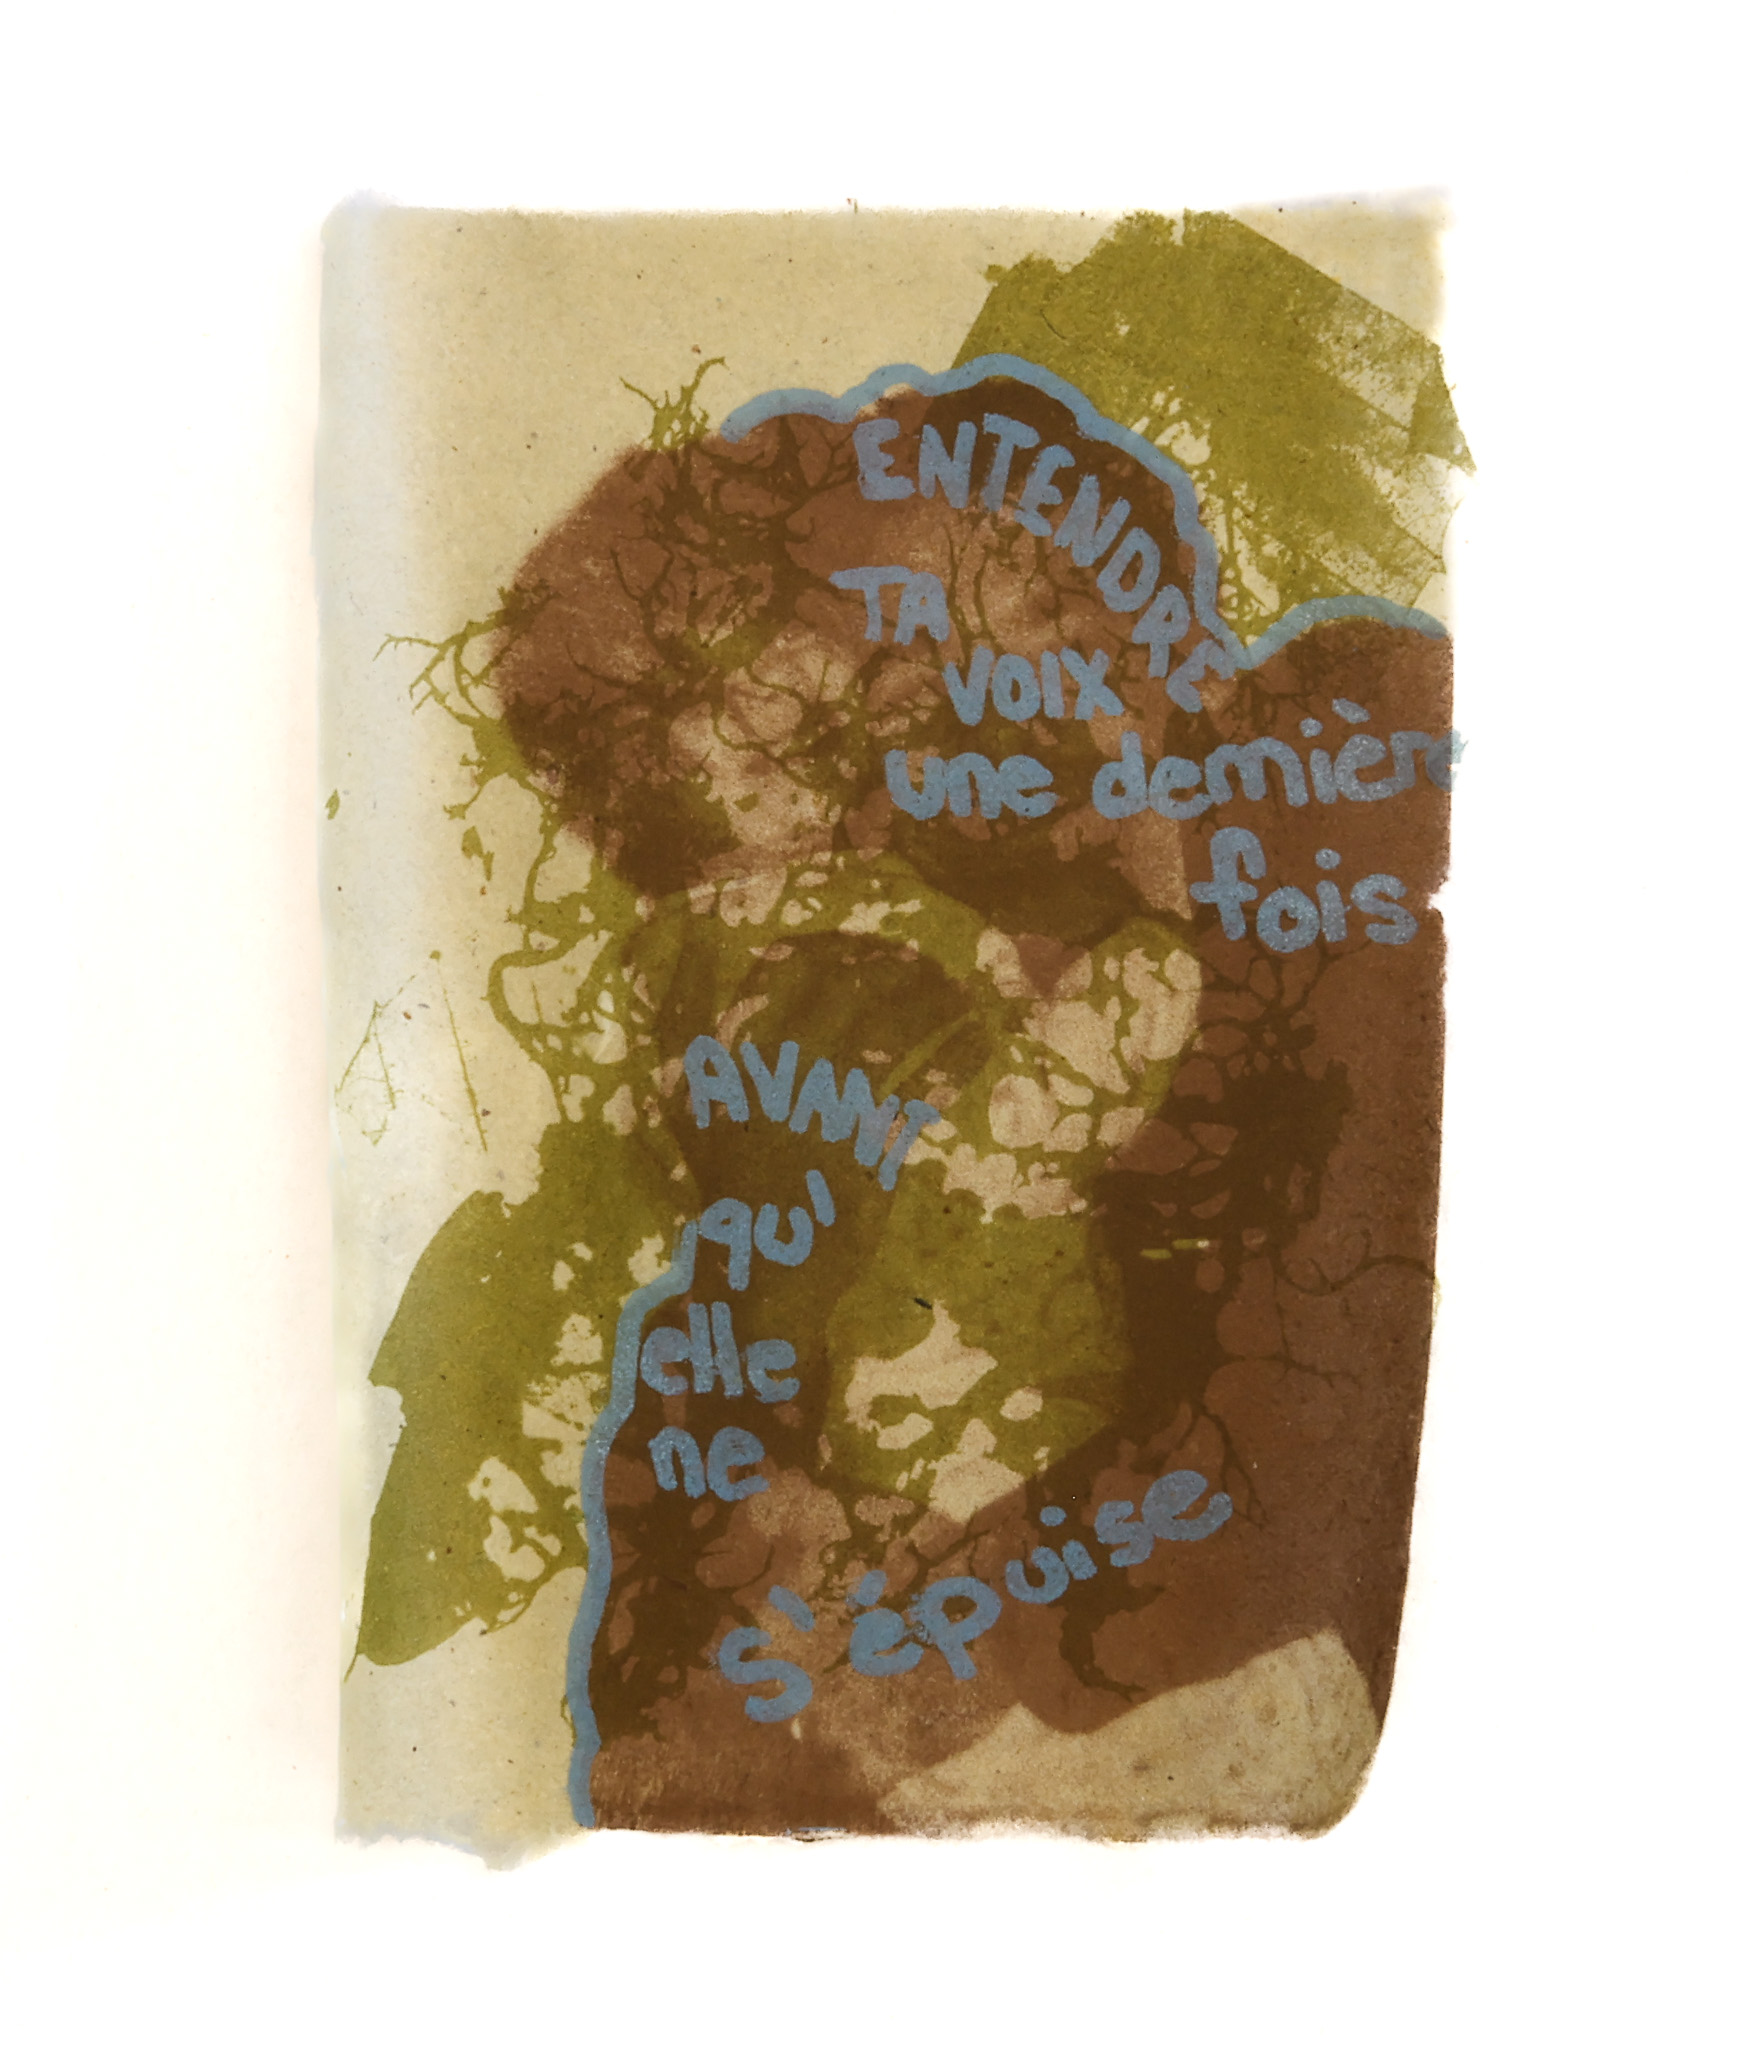 ENTENDRE
TA
VOIX
une dernière
fois
AVANT
qu'
elle
ne
s'épuise